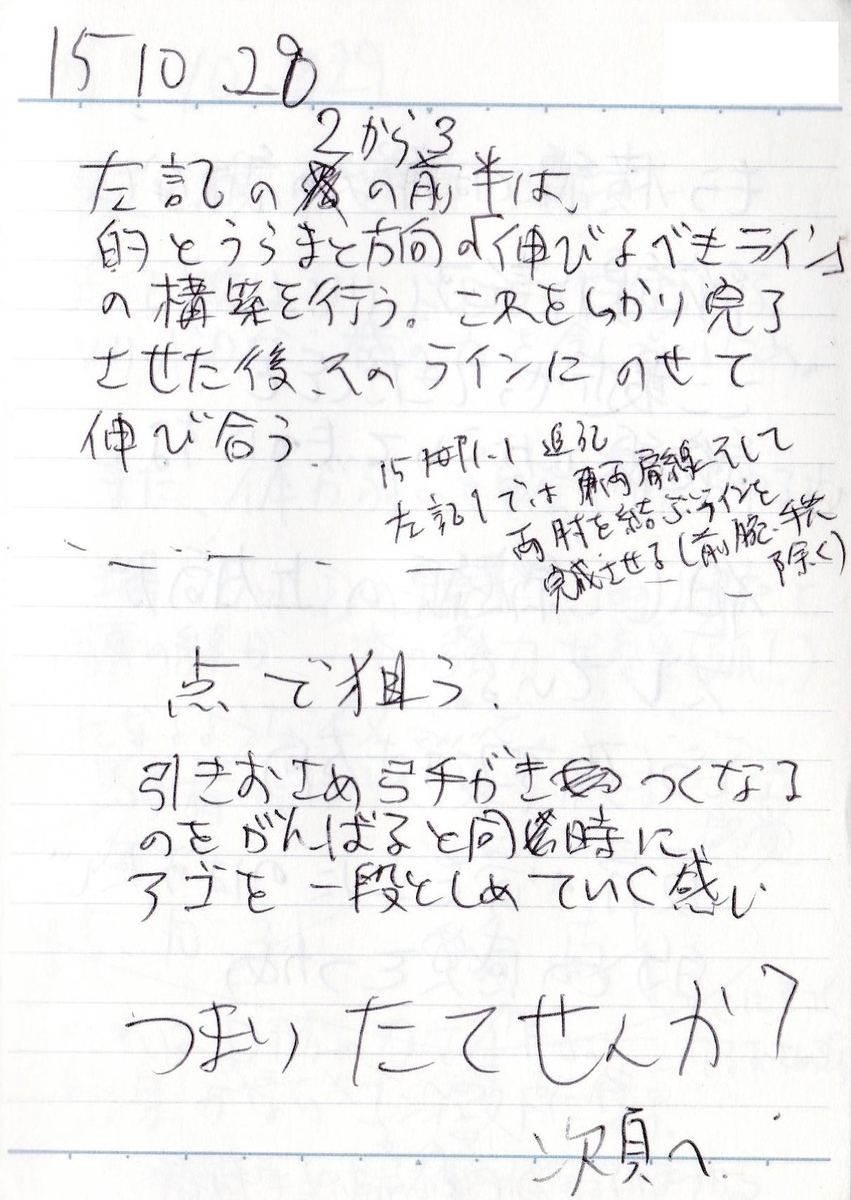 15 10 28
2から3
左記のの前半は、
的とうらまと方向の「伸びるべきライン」
の構築を行う。これをしっかり完了
させた後、そのラインにのせて
伸び合う。
15 追記
左記1では両肩線そして
両肘を結ぶラインを
完成させる(前腕、手先
除く)
点で狙う。
引きおさめ弓手がきつくなる
のをがんばると同時に
アゴを一段としめていく感じ
つまりたてせんか?
次頁へ